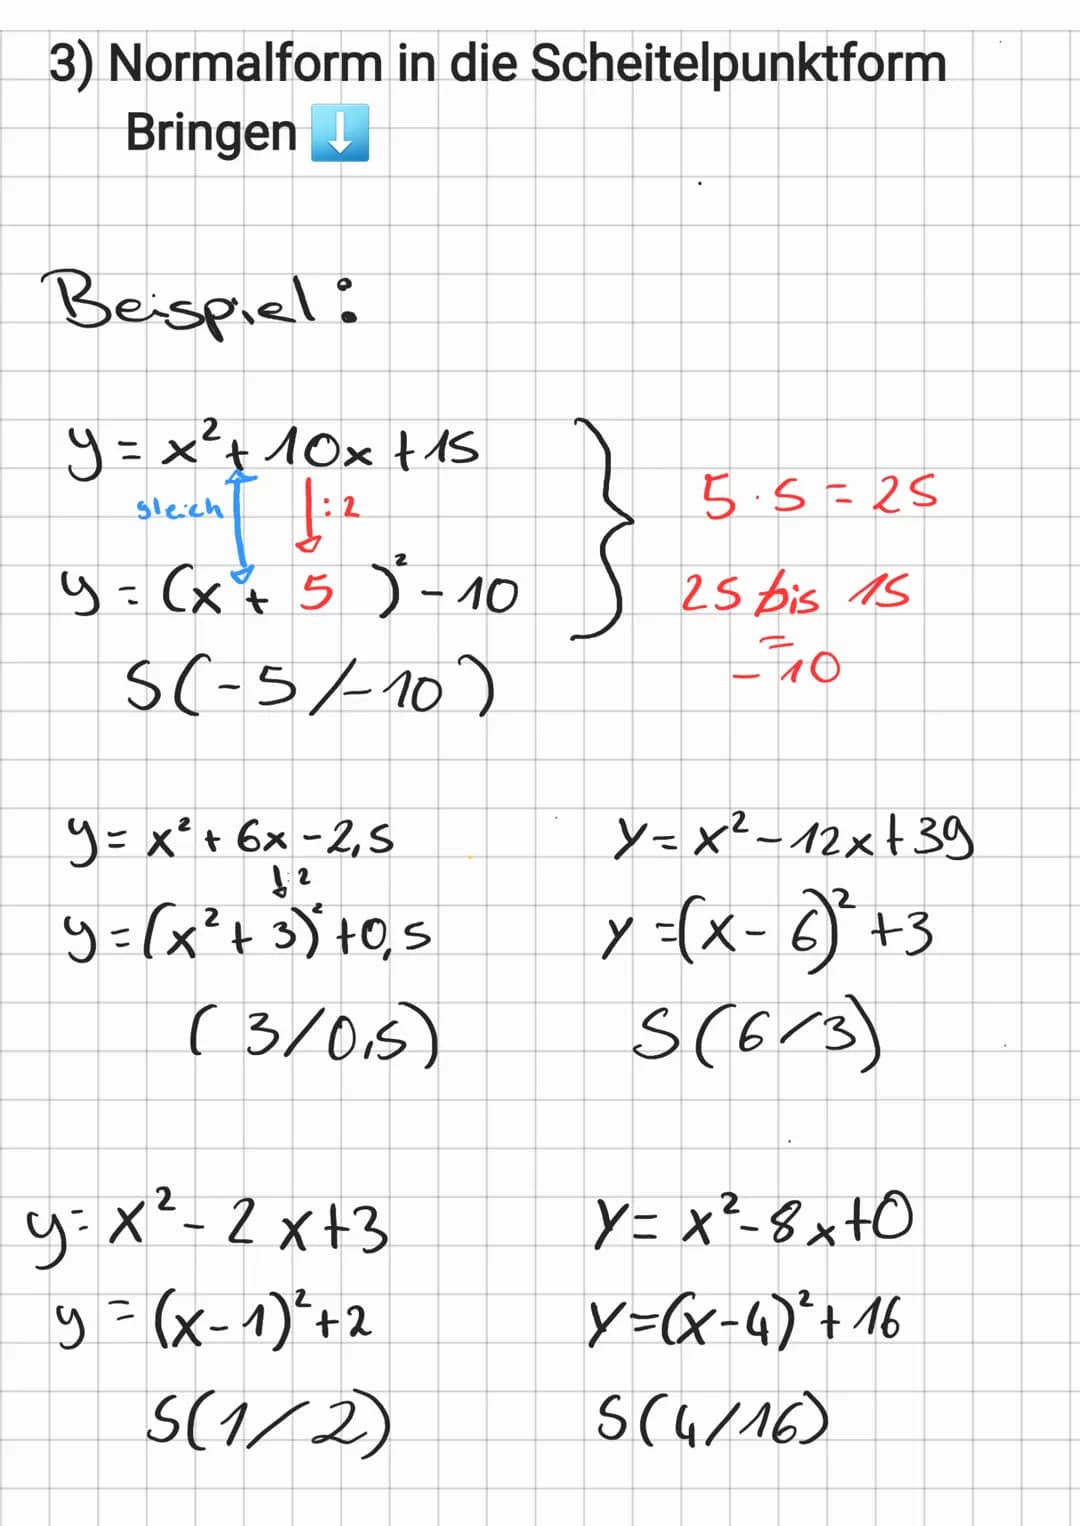 3) Normalform in die Scheitelpunktform
Bringen ⬇️
Beispiel:
y = x² + 10x + 15
gleich
: 2
y = (x + 5 )² - 10
S(-5/-10)
5 · 5 = 25
25 bis 15
=
- 10
y = x² + 6x - 2,5
: 2
y = (x² + 3)² + 0,5
( 3/0,5)
y = x² - 12x + 39
y = (x - 6)² + 3
S(6/3)
y = x² - 2x + 3
y = (x - 1)² + 2
S(1/2)
y = x² - 8x + 0
y = (x - 4)² + 16
S(4/16)